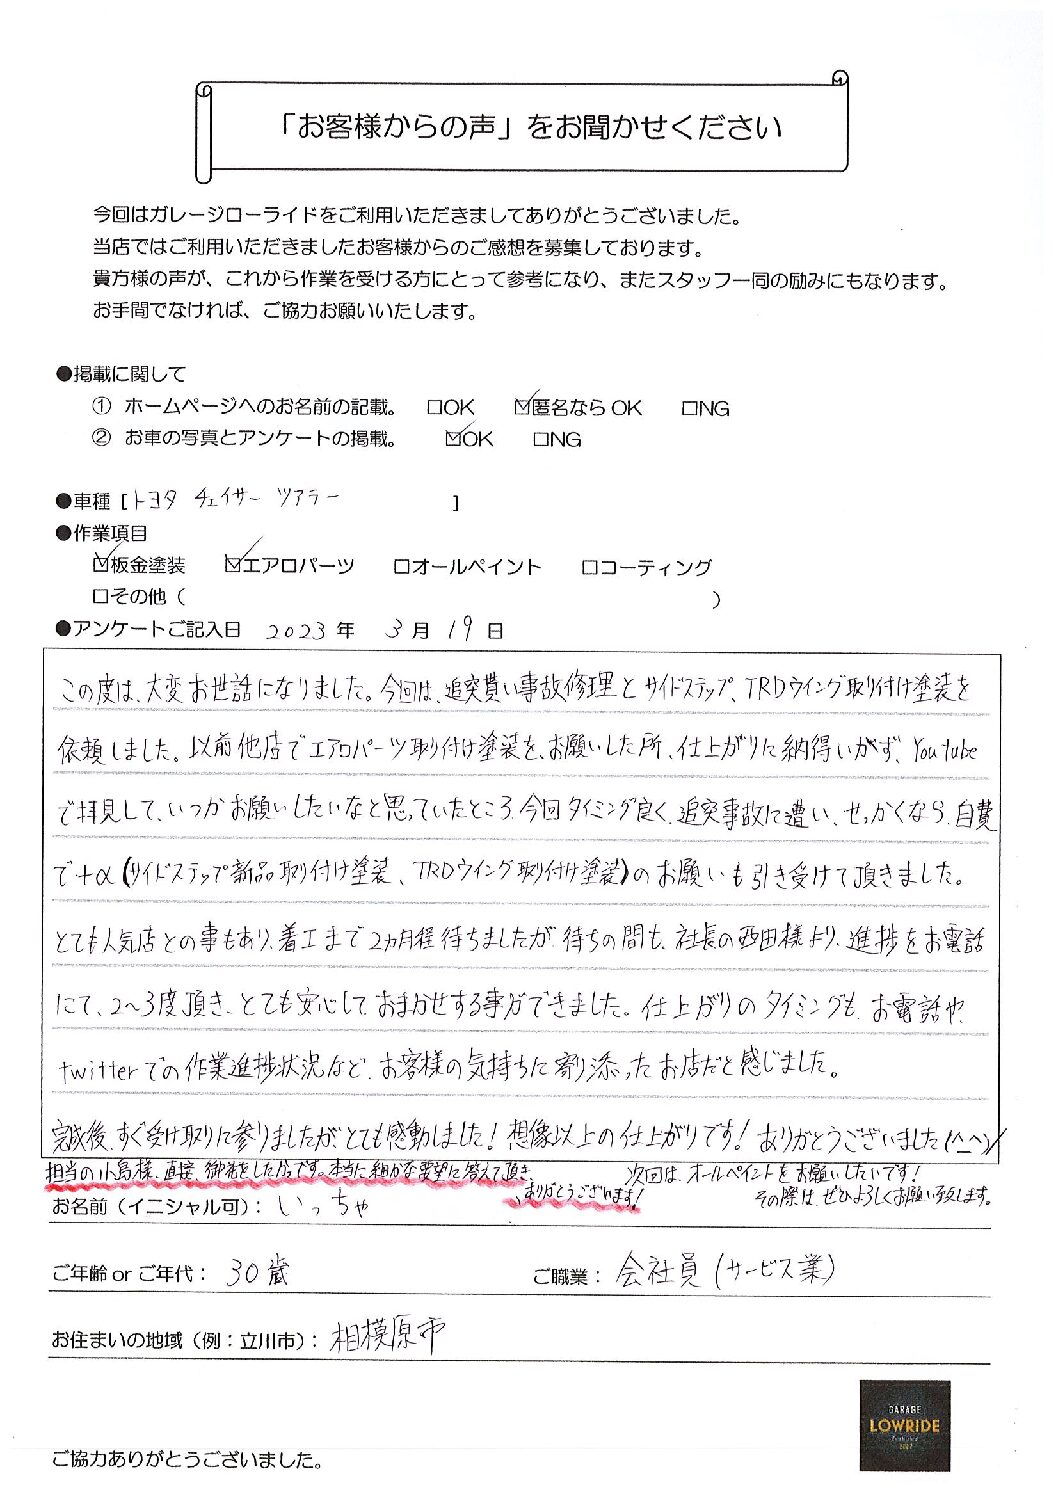 「お客様からの声」をお聞かせください
今回はガレージローライドをご利用いただきましてありがとうございました。
当店ではご利用いただきましたお客様からのご感想を募集しております。
貴方様の声が、これから作業を受ける方にとって参考になり、またスタッフ一同の励みにもなります。
お手間でなければ、ご協力お願いいたします。
●掲載に関して
① ホームページへのお名前の記載。 □OK ☑匿名なら OK □NG
② お車の写真とアンケートの掲載。 ☑OK □NG
●車種 [トヨタ チェイサー ツアラー ]
●作業項目
☑板金塗装 ☑エアロパーツ □オールペイント □コーティング
□その他 ( )
●アンケートご記入日 2023 年 3 月 19 日
この度は、大変お世話になりました。今回は、追突貰い事故修理とサイドステップ、TRDウイング取り付け塗装を
依頼しました。以前他店でエアロパーツ取り付け塗装を、お願いした所、仕上がりに納得いかず、YouTube
で拝見して、いつかお願いしたいなと思っていたところ、今回タイミング良く、追突事故に遭い、せっかくなら、自費
で+α(サイドステップ新品取り付け塗装、TRDウイング取り付け塗装)のお願いも引き受けて頂きました。
とても人気店との事もあり、着工まで2カ月程待ちましたが、待ちの間も、社長の西田様より、進捗をお電話
にて、2〜3度頂き、とても安心しておまかせする事ができました。仕上がりのタイミングも、お電話や、
twitterでの作業進捗状況など、お客様の気持ちに寄り添ったお店だと感じました。
完成後、すぐ受け取りに参りましたが、とても感動しました！想像以上の仕上がりです！ありがとうございました(^_^)/
担当の小島様、直接、御礼をしたかったです。本当に細かな要望に答えて頂き、
ありがとうございます！
次回は、オールペイントをお願いしたいです！
その際は、ぜひよろしくお願い致します。
お名前（イニシャル可）： いっちゃ
ご年齢 or ご年代： 30歳 ご職業： 会社員(サービス業)
お住まいの地域（例：立川市）： 相模原市
GARAGE
LOWRIDE
ご協力ありがとうございました。